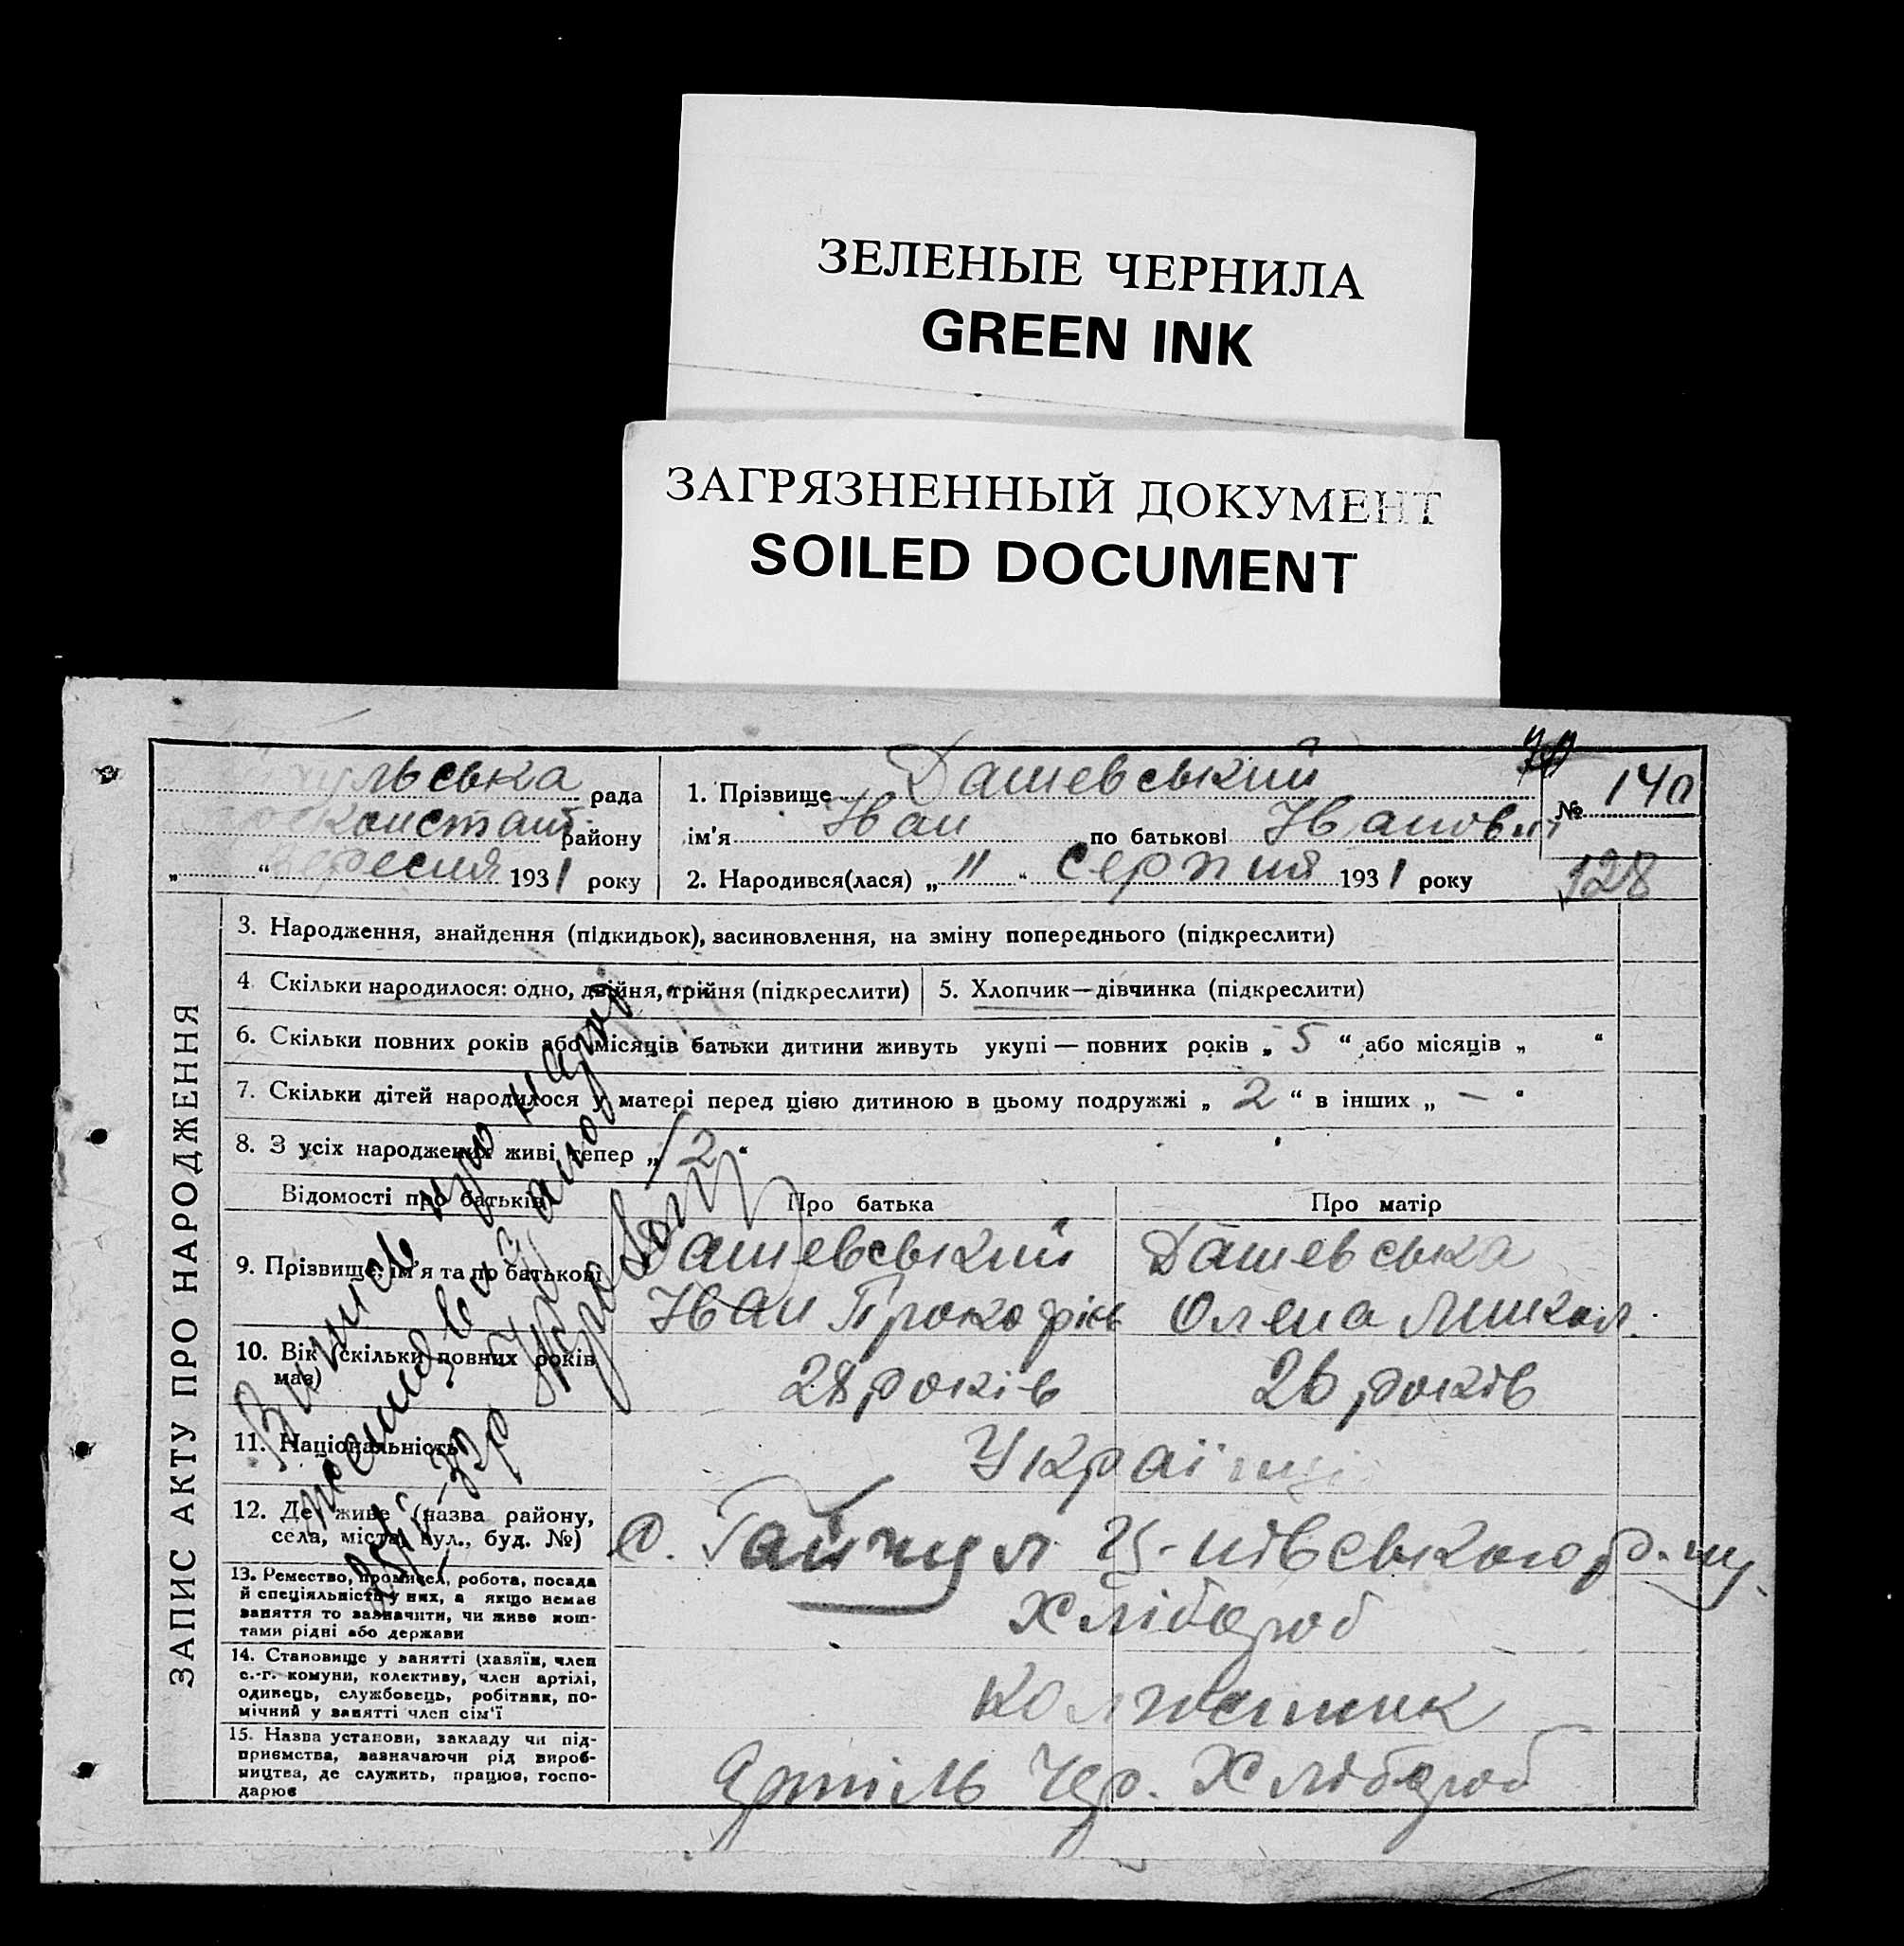 ЗЕЛЕНЫЕ ЧЕРНИЛА
GREEN INK
ЗАГРЯЗНЕННЫЙ ДОКУМЕНТ
SOILED DOCUMENT
ЗАПИС АКТУ ПРО НАРОДЖЕННЯ
рада
району
„ “ вересня 1931 року
1. Прізвище Дашевський
ім'я Іван по батькові Іванович
2. Народився(лася) „11“ серпня 1931 року
№ 140
128
3. Народження, знайдення (підкидьок), засиновлення, на зміну попереднього (підкреслити)
4. Скільки народилося: одно, двійня, трійня (підкреслити)
5. Хлопчик—дівчинка (підкреслити)
6. Скільки повних років або місяців батьки дитини живуть укупі — повних років „5“ або місяців „ “
7. Скільки дітей народилося у матері перед цією дитиною в цьому подружжі „2“ в інших „—“
8. З усіх народжених живі тепер „2“
Відомості про батьків
Про батька
Про матір
9. Прізвище, ім'я та по батькові
Дашевський
Іван Прокофів
Дашевська
Олена Микол.
10. Вік (скільки повних років має)
28 років
26 років
11. Національність
Українці
12. Де живе (назва району,
села, міста, вул., буд. №)
с. Гайчуля
13. Ремество, промисел, робота, посада
й спеціяльність у них, а якщо немає
заняття то зазначити, чи живе кош-
тами рідні або держави
Хлібороб
14. Становище у занятті (хазяїн, член
с.-г. комуни, колективу, член артілі,
одинець, службовець, робітник, по-
мічний у занятті член сім'ї
колгоспник
15. Назва установи, закладу чи під-
приємства, зазначаючи рід вироб-
ництва, де служить, працює, госпо-
дарює
Артіль Чер. Хлібороб